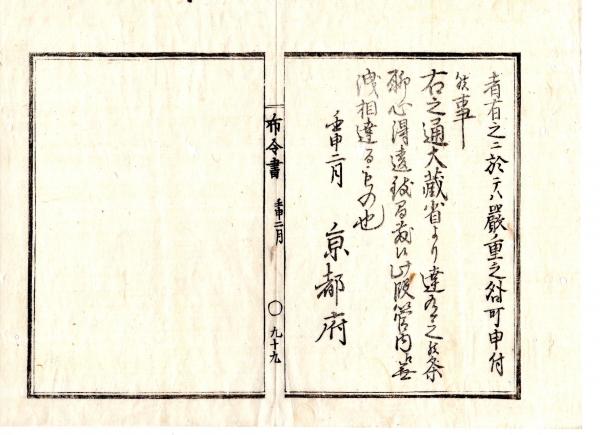 者有之ニ於テハ嚴重之咎可申付
候事
右之通大藏省より達有之候条
聊心得違致間敷候此段管内無
洩相達るもの也
壬申二月　京都府
布令書　壬申二月　〇九十九